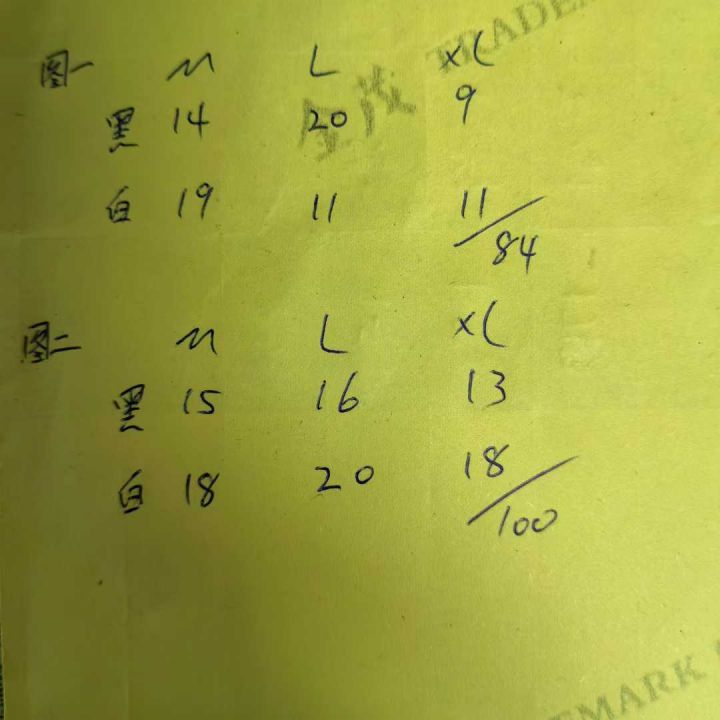 TRADEM
图一 M L XL
金茂
黑 14 20 9
白 19 11 11
84
图二 M L XL
黑 15 16 13
白 18 20 18
100
EMARK